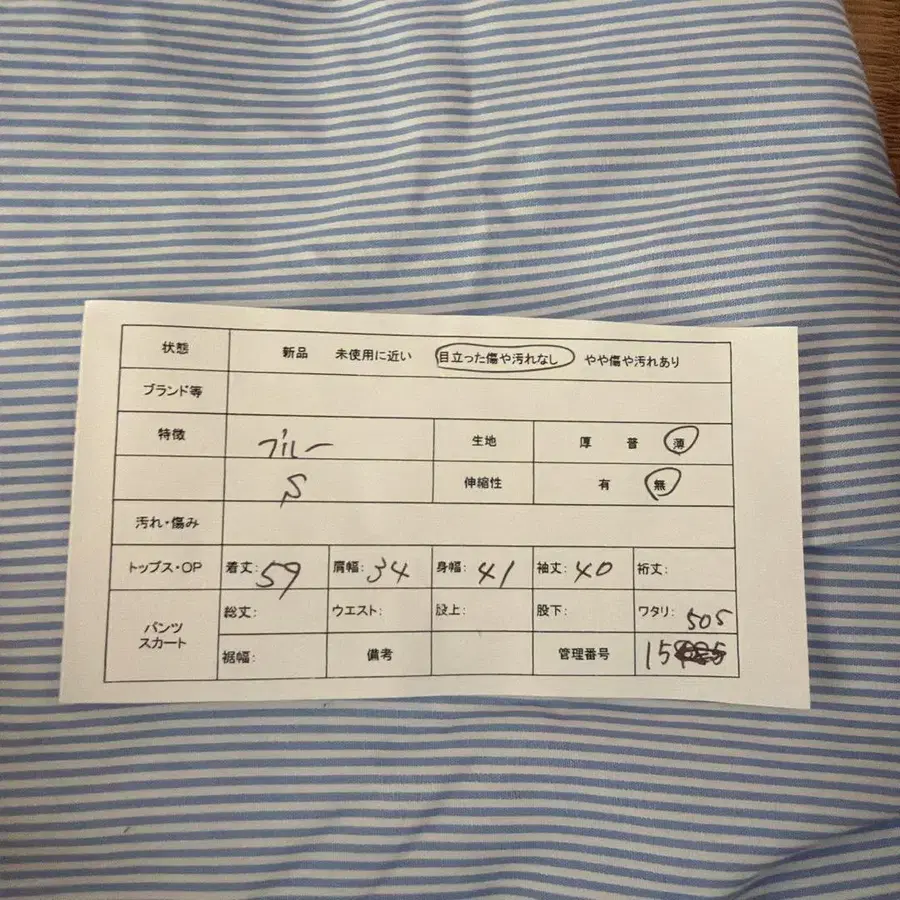 状態 新品 未使用に近い 目立った傷や汚れなし やや傷や汚れあり
ブランド等
特徴 ブルー 生地 厚 普 薄
S 伸縮性 有 無
汚れ・傷み
トップス・OP 着丈: 59 肩幅: 34 身幅: 41 袖丈: 40 裄丈:
パンツ
スカート
総丈: ウエスト: 股上: 股下: ワタリ: 505
裾幅: 備考 管理番号 15